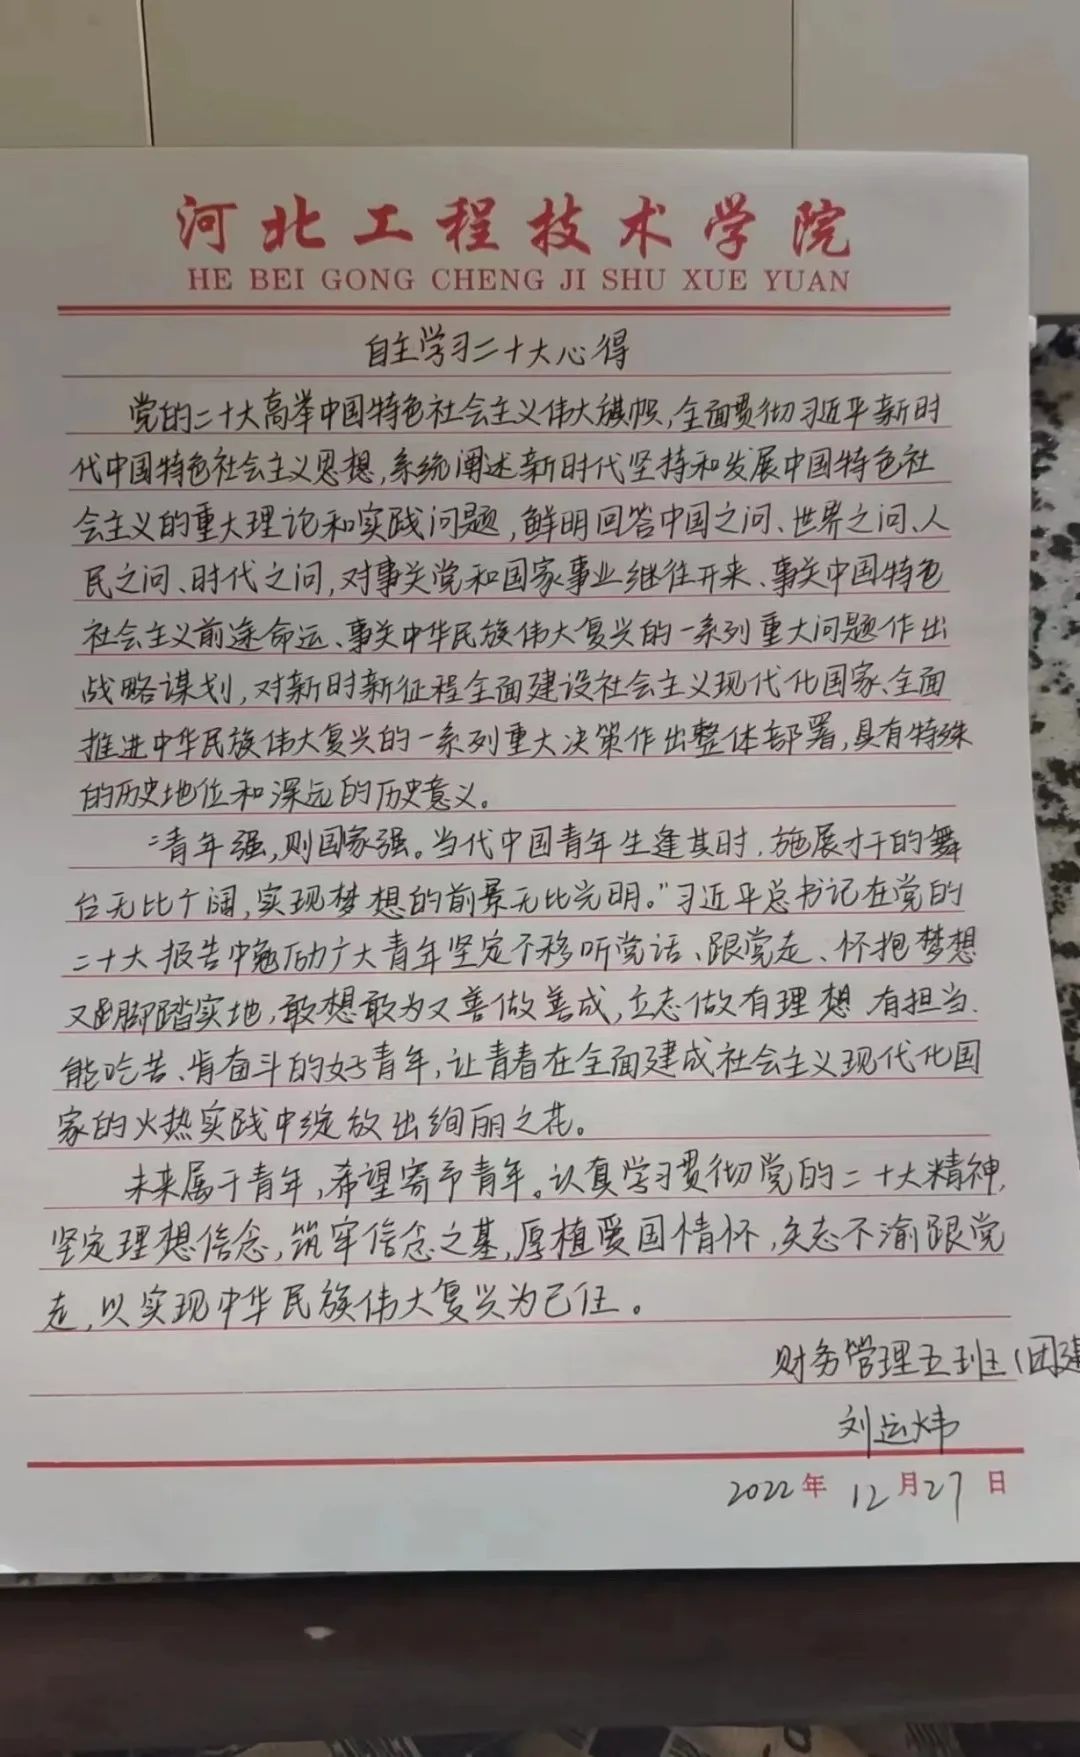 河北工程技术学院
HE BEI GONG CHENG JI SHU XUE YUAN
自主学习二十大心得
党的二十大高举中国特色社会主义伟大旗帜,全面贯彻习近平新时
代中国特色社会主义思想,系统阐述新时代坚持和发展中国特色社
会主义的重大理论和实践问题,鲜明回答中国之问、世界之问、人
民之问、时代之问,对事关党和国家事业继往开来、事关中国特色
社会主义前途命运、事关中华民族伟大复兴的一系列重大问题作出
战略谋划,对新时新征程全面建设社会主义现代化国家、全面
推进中华民族伟大复兴的一系列重大决策作出整体部署,具有特殊
的历史地位和深远的历史意义。
“青年强,则国家强。当代中国青年生逢其时,施展才干的舞
台无比广阔,实现梦想的前景无比光明。”习近平总书记在党的
二十大报告中勉励广大青年坚定不移听党话、跟党走、怀抱梦想
又脚踏实地,敢想敢为又善做善成,立志做有理想 有担当、
能吃苦、肯奋斗的好青年,让青春在全面建成社会主义现代化国
家的火热实践中绽放出绚丽之花。
未来属于青年,希望寄予青年。认真学习贯彻党的二十大精神,
坚定理想信念,筑牢信念之基,厚植爱国情怀,矢志不渝跟党
走,以实现中华民族伟大复兴为己任。
财务管理五班(团建
刘运炜
2022年 12月27日